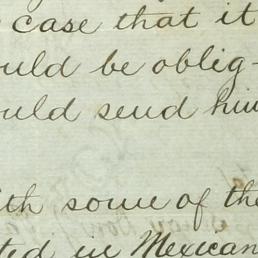 case that it
ould be oblig-
ould send him
ith some of the
ted in Mexican